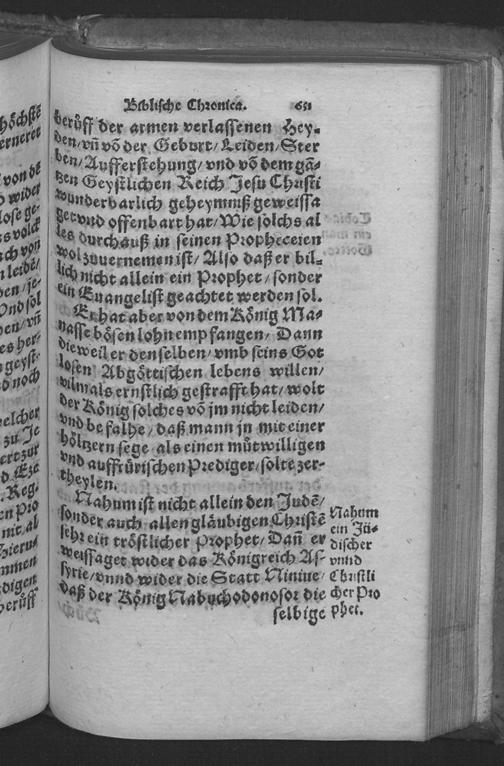 Biblische Chronica. 651
berůff der armen verlassenen Hey-
den/ vñ võ der Geburt/ Leiden/ Ster
ben/ Aufferstehung/ vnd võ dem gã-
tzen Geystlichen Reich Jesu Christi
wunderbarlich geheymniß geweissa
get vnd offenbart hat/ Wie solchs al
les durchauß in seinen Propheceien
wol zuuernemen ist/ Also daß er bil-
lich nicht allein ein Prophet/ sonder
ein Euangelist geachtet werden sol.
Er hat aber von dem König Ma-
nasse bösen lohn empfangen/ Dann
dieweil er denselben/ vmb seins Got
losen Abgöttischen lebens willen/
vilmals ernstlich gestrafft hat/ wolt
der König solches võ jm nicht leiden/
vnd befalhe/ daß mann jn mit einer
höltzern sege als einen můtwilligen
vnd auffrürischen Prediger/ solte zer-
theylen.
Nahum ist nicht allein den Judẽ/
sonder auch allen gläubigen Christẽ
sehr ein tröstlicher Prophet/ Dañ er
weissaget wider das Königreich As-
syrie/ vnnd wider die Statt Niniue/
daß der König Nabuchodonosor die
selbige
Nahum
ein Jü-
discher
vnnd
Christli
cher Pro
phet.